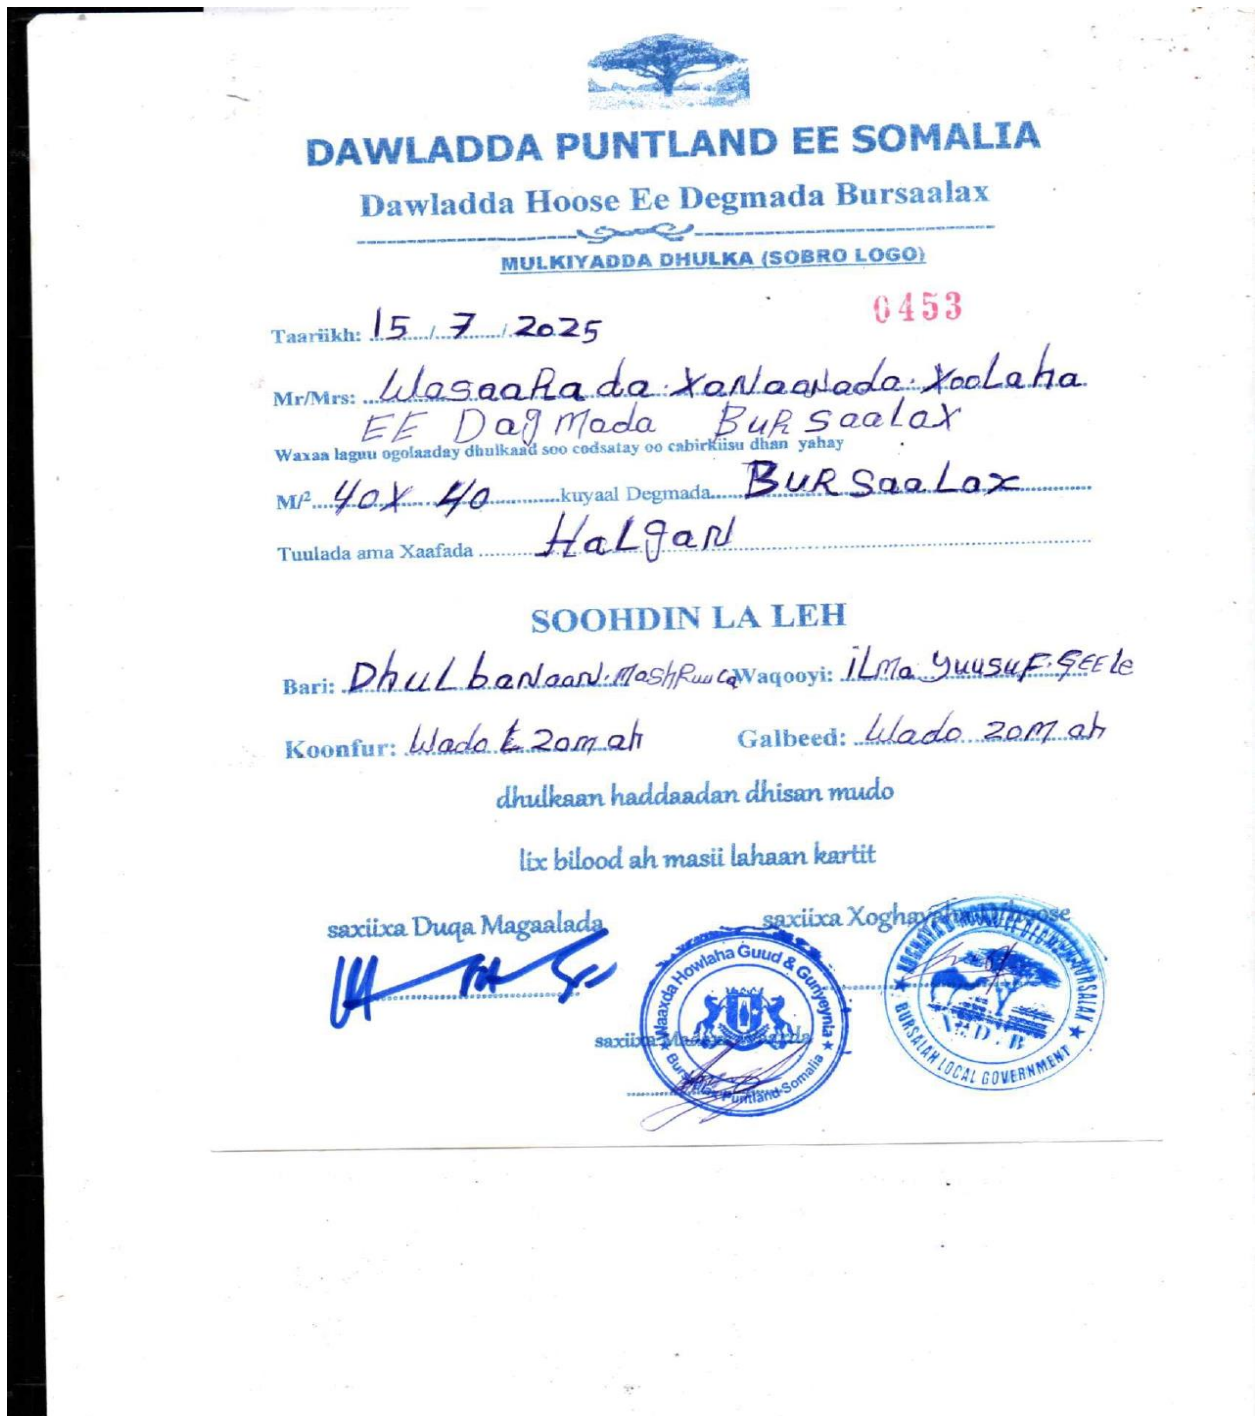 DAWLADDA PUNTLAND EE SOMALIA
Dawladda Hoose Ee Degmada Bursaalax
MULKIYADDA DHULKA (SOBRO LOGO)
0453
Taariikh: 15 / 7 / 2025
Mr/Mrs: Wasaarada Xanaanada Xoolaha
EE Dagmada Bursaalax
Waxaa laguu ogolaaday dhulkaad soo codsatay oo cabirkiisu dhan yahay
M/² 40X 40 kuyaal Degmada BURSaaLax
Tuulada ama Xaafada HaLgan
SOOHDIN LA LEH
Bari: DhuL banaan. MashRuuca Waqooyi: iLma Yuusuf. GEELe
Koonfur: Wado 20m ah Galbeed: Wado 20m ah
dhulkaan haddaadan dhisan mudo
lix bilood ah masii lahaan kartit
saxiixa Duqa Magaalada saxiixa Xoghayaha D/Hoose
saxiixa Waaxda
Waaxda Howlaha Guud & Guriyeynta
Bursaalax Puntland Somalia
BURSALAH LOCAL GOVERNMENT